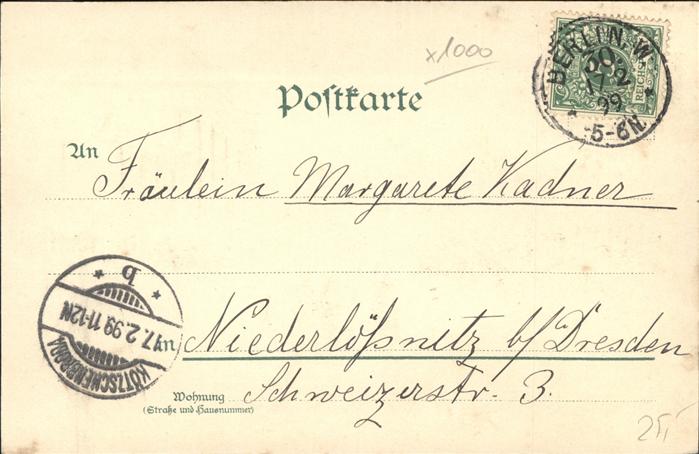 x1000
BERLIN. W.
50
17 2
99
5-6N.
REICHSPOST
Postkarte
An
Fräulein Margarete Kadner
b
17. 2. 99. 11-12N.
KÖTZSCHENBRODA
in Niederlößnitz b/Dresden
Wohnung
(Straße und Hausnummer)
Schweizerstr. 3.
25,